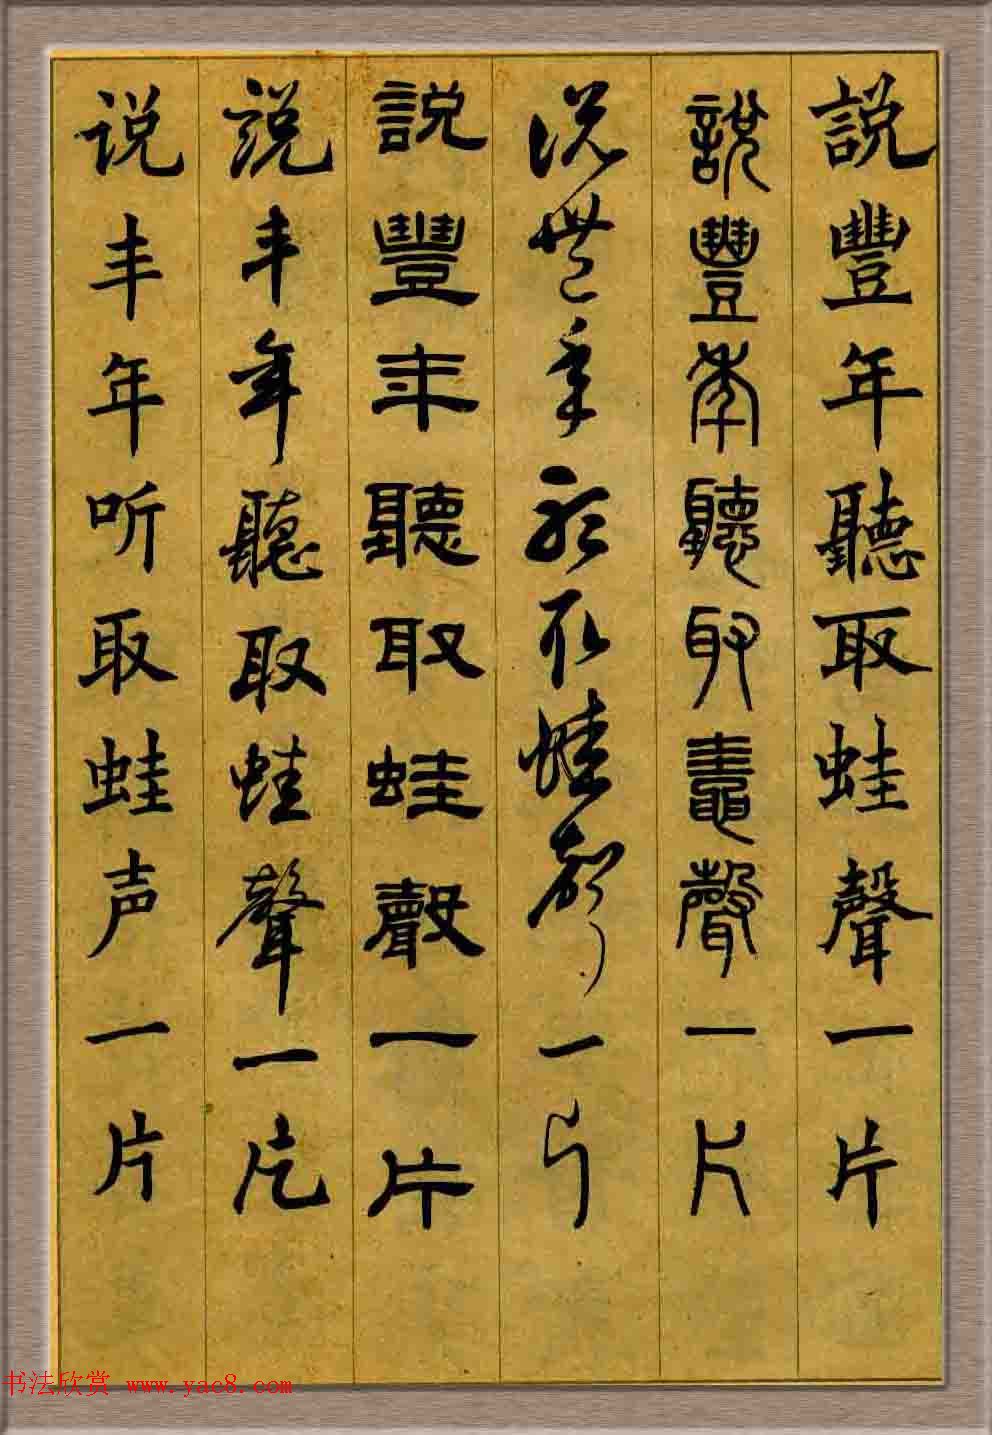 説豐年聽取蛙聲一片
説豐年聽取鼃聲一片
说豐年聽取蛙聲一片
説豐年聽取蛙聲一片
説丰年聽取蛙聲一片
说丰年听取蛙声一片
书法欣赏 www.yac8.com